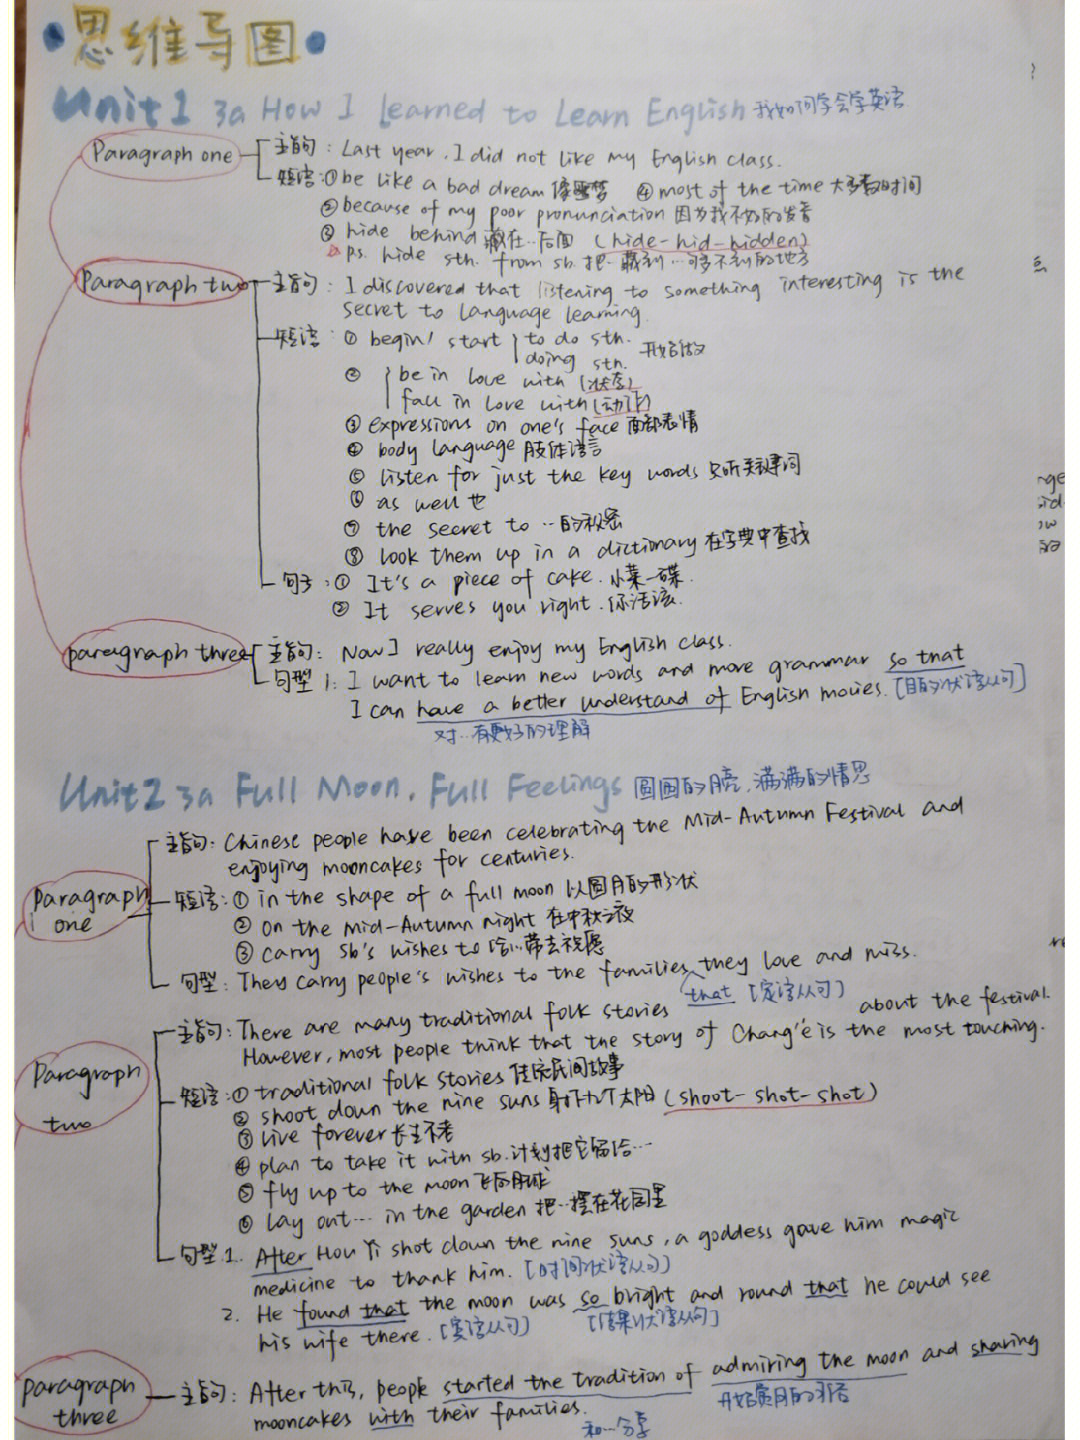 思维导图
Unit1 3a How I Learned to Learn English 我如何学会学英语
Paragraph one
主旨句: Last year, I did not like my English class.
短语: ① be like a bad dream 像噩梦 ④ most of the time 大多数时间
② because of my poor pronunciation 因为我不好的发音
③ hide behind 藏在…后面 (hide-hid-hidden)
Ps. hide sth. from sb. 把…藏到…够不到的地方
Paragraph two
主旨句: I discovered that listening to something interesting is the
secret to language learning.
短语: ① begin/ start to do sth.
doing sth. 开始做
② be in love with (状态)
fall in love with (动作)
③ expressions on one's face 面部表情
④ body language 肢体语言
⑤ listen for just the key words 只听关键词
⑥ as well 也
⑦ the secret to …的秘密
⑧ look them up in a dictionary 在字典中查找
句子: ① It's a piece of cake. 小菜一碟.
② It serves you right. 你活该.
paragraph three
主旨句: Now I really enjoy my English class.
句型 1: I want to learn new words and more grammar so that
I can have a better understand of English movies. [目的状语从句]
对…有更好的理解
Unit2 3a Full Moon, Full Feelings 圆圆的月亮,满满的情思
主旨句: Chinese people have been celebrating the Mid-Autumn Festival and
enjoying mooncakes for centuries.
Paragraph one
短语: ① in the shape of a full moon 以圆月的形状
② on the Mid-Autumn night 在中秋之夜
③ carry sb's wishes to 给…带去祝愿
句型: They carry people's wishes to the families they love and miss.
that [定语从句]
主旨句: There are many traditional folk stories about the festival.
However, most people think that the story of Chang'e is the most touching.
Paragraph two
短语: ① traditional folk stories 传统民间故事
② shoot down the nine suns 射下九个太阳 (shoot-shot-shot)
③ live forever 长生不老
④ plan to take it with sb. 计划把它留给…
⑤ fly up to the moon 飞向月球
⑥ lay out … in the garden 把…摆在花园里
句型 1. After Hou Yi shot down the nine suns, a goddess gave him magic
medicine to thank him. [时间状语从句]
2. He found that the moon was so bright and round that he could see
his wife there. [宾语从句] [结果状语从句]
paragraph three
主旨句: After this, people started the tradition of admiring the moon and sharing
mooncakes with their families. 开始赏月的习俗
和…分享